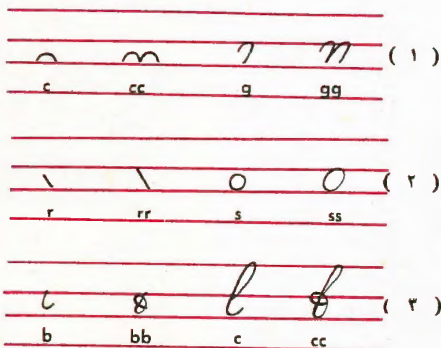 ( ۱ )
c cc g gg
( ۲ )
r rr s ss
( ۳ )
b bb c cc